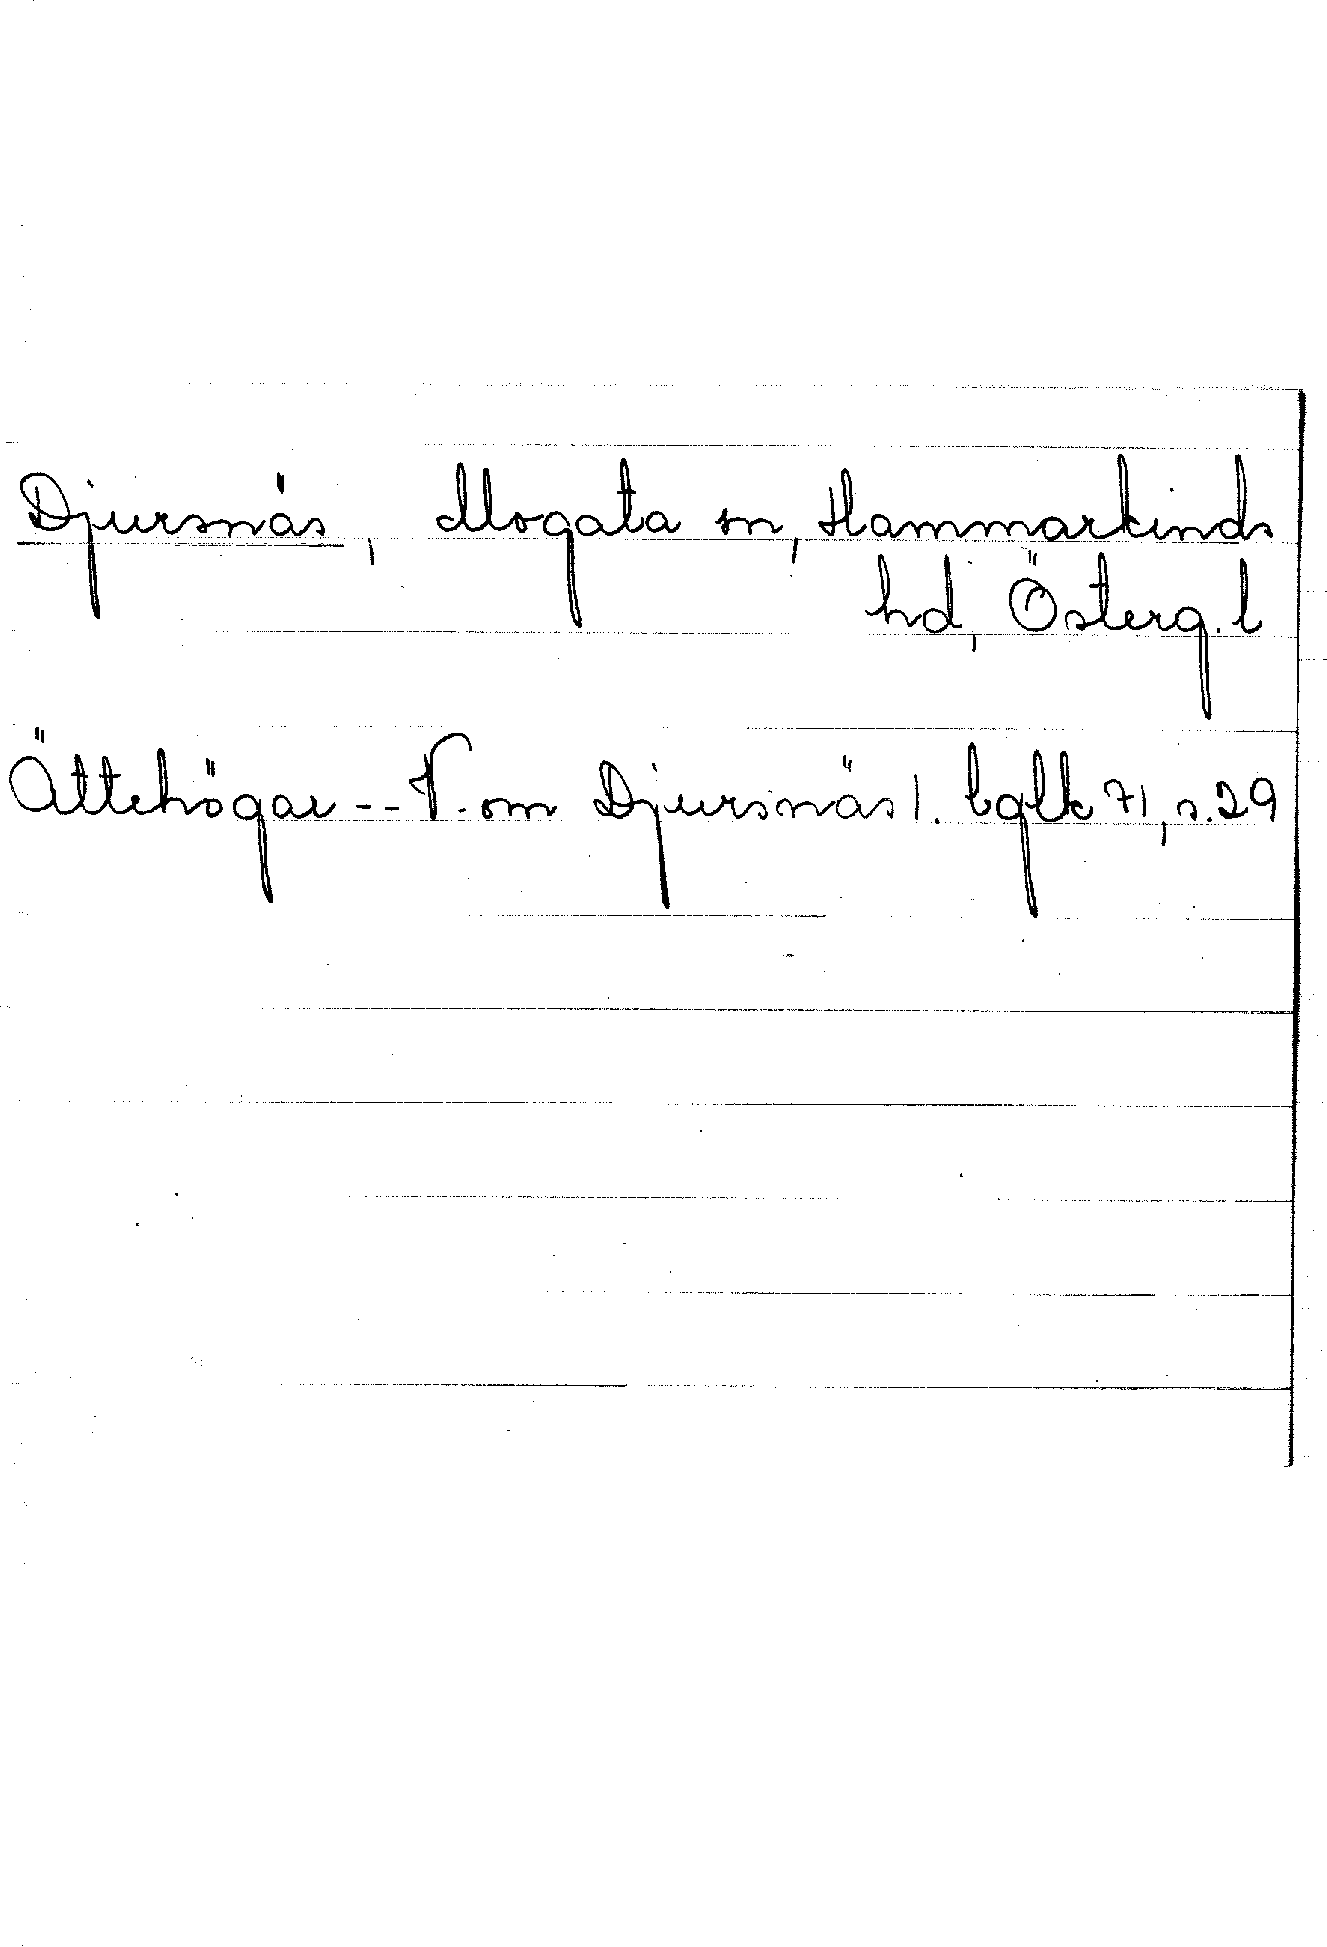 Djursnäs, Mogata sn, Hammarkinds
hd, Österg. l
Ättehögar -- V. om Djursnäs l. bglk 71, s. 29